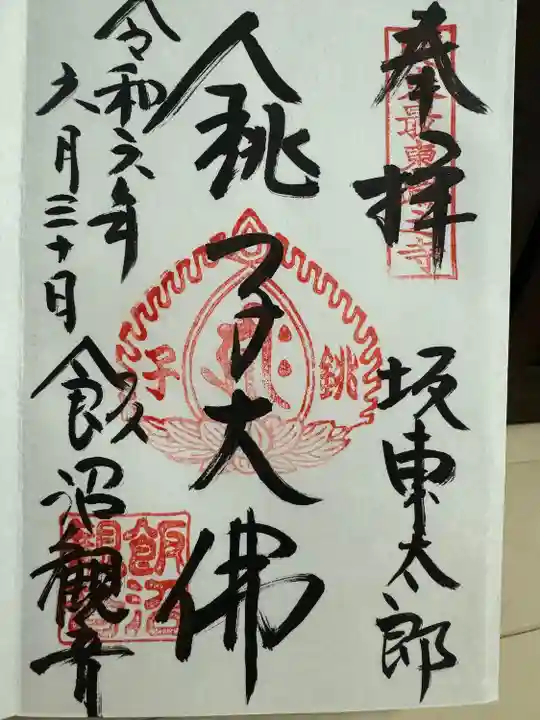 奉拝
坂東太郎
銚子大佛
令和六年
六月三十日
飯沼観音
最東
之寺
銚
子
飯沼
観音